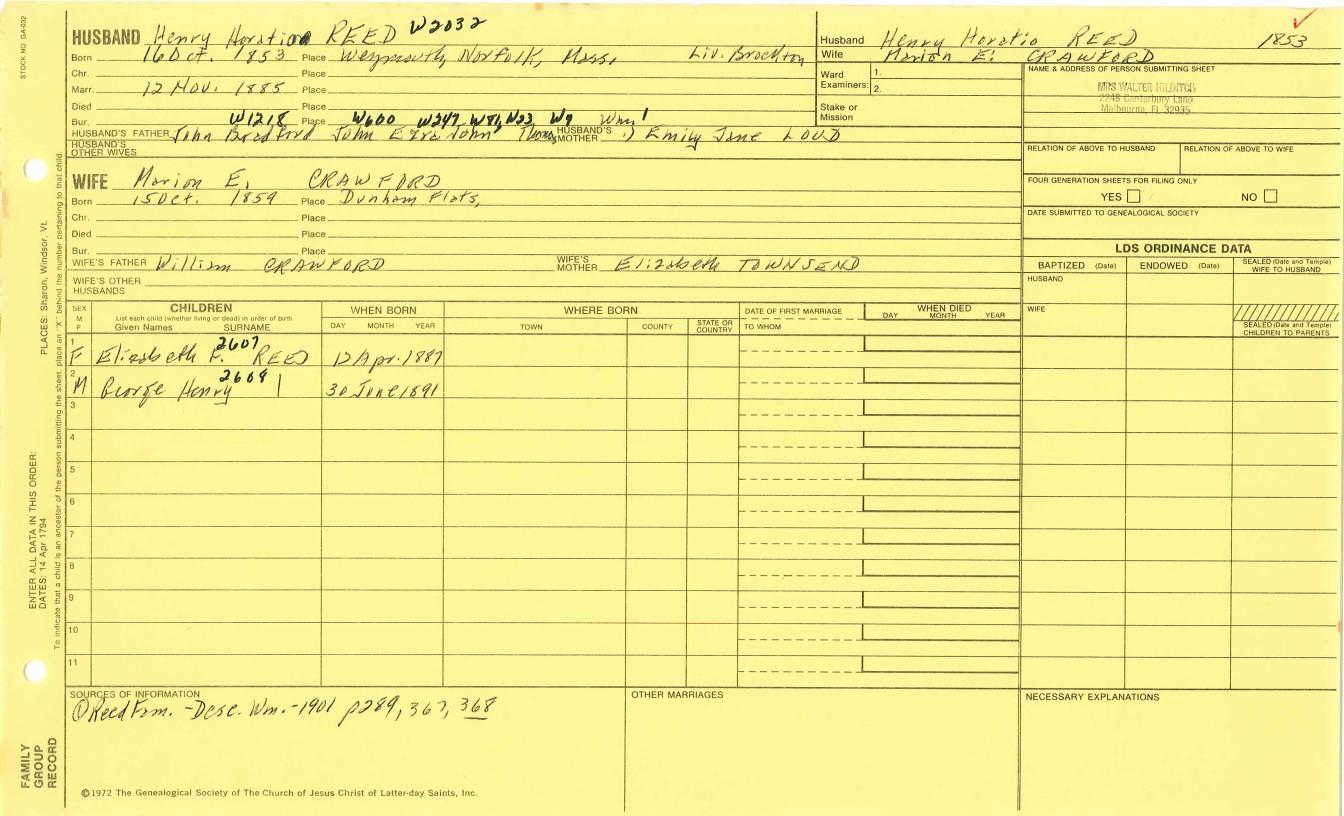 STOCK NO. GA-032
HUSBAND Henry Horatio REED W2032
Born 16 Oct. 1853 Place Weymouth, Norfolk, Mass. Liv. Brockton
Chr. Place
Marr. 12 Nov. 1885 Place
Died Place
Bur. W1218 Place W600 W247 W81, W23 W9 Wm.1
HUSBAND'S FATHER John Bradford John Ezra John Thomas HUSBAND'S MOTHER Emily Jane LOUD
HUSBAND'S OTHER WIVES
WIFE Marion E. CRAWFORD
Born 15 Oct. 1859 Place Dunham Flats,
Chr. Place
Died Place
Bur. Place
WIFE'S FATHER William CRAWFORD WIFE'S MOTHER Elizabeth TOWNSEND
WIFE'S OTHER HUSBANDS
Husband Henry Horatio REED 1853
Wife Marion E. CRAWFORD
Ward Examiners: 1. 2.
Stake or Mission
NAME & ADDRESS OF PERSON SUBMITTING SHEET
MRS WALTER HILDITCH
2248 Canterbury Lane
Melbourne, FL 32935
RELATION OF ABOVE TO HUSBAND RELATION OF ABOVE TO WIFE
FOUR GENERATION SHEETS FOR FILING ONLY
YES NO
DATE SUBMITTED TO GENEALOGICAL SOCIETY
LDS ORDINANCE DATA
BAPTIZED (Date) ENDOWED (Date) SEALED (Date and Temple) WIFE TO HUSBAND
HUSBAND
WIFE
SEALED (Date and Temple) CHILDREN TO PARENTS
SEX M F CHILDREN WHEN BORN WHERE BORN DATE OF FIRST MARRIAGE WHEN DIED
List each child (whether living or dead) in order of birth
Given Names SURNAME DAY MONTH YEAR TOWN COUNTY STATE OR COUNTRY TO WHOM DAY MONTH YEAR
2607
1 F Elizabeth F. REED 12 Apr. 1887
2608
2 M George Henry 30 June 1891
3
4
5
6
7
8
9
10
11
SOURCES OF INFORMATION OTHER MARRIAGES NECESSARY EXPLANATIONS
① Reed Fam. - Desc. Wm. - 1901 p289, 367, 368
©1972 The Genealogical Society of The Church of Jesus Christ of Latter-day Saints, Inc.
FAMILY GROUP RECORD
ENTER ALL DATA IN THIS ORDER:
DATES: 14 Apr 1794
PLACES: Sharon, Windsor, Vt.
To indicate that a child is an ancestor of the person submitting the sheet, place an "X" behind the number pertaining to that child.